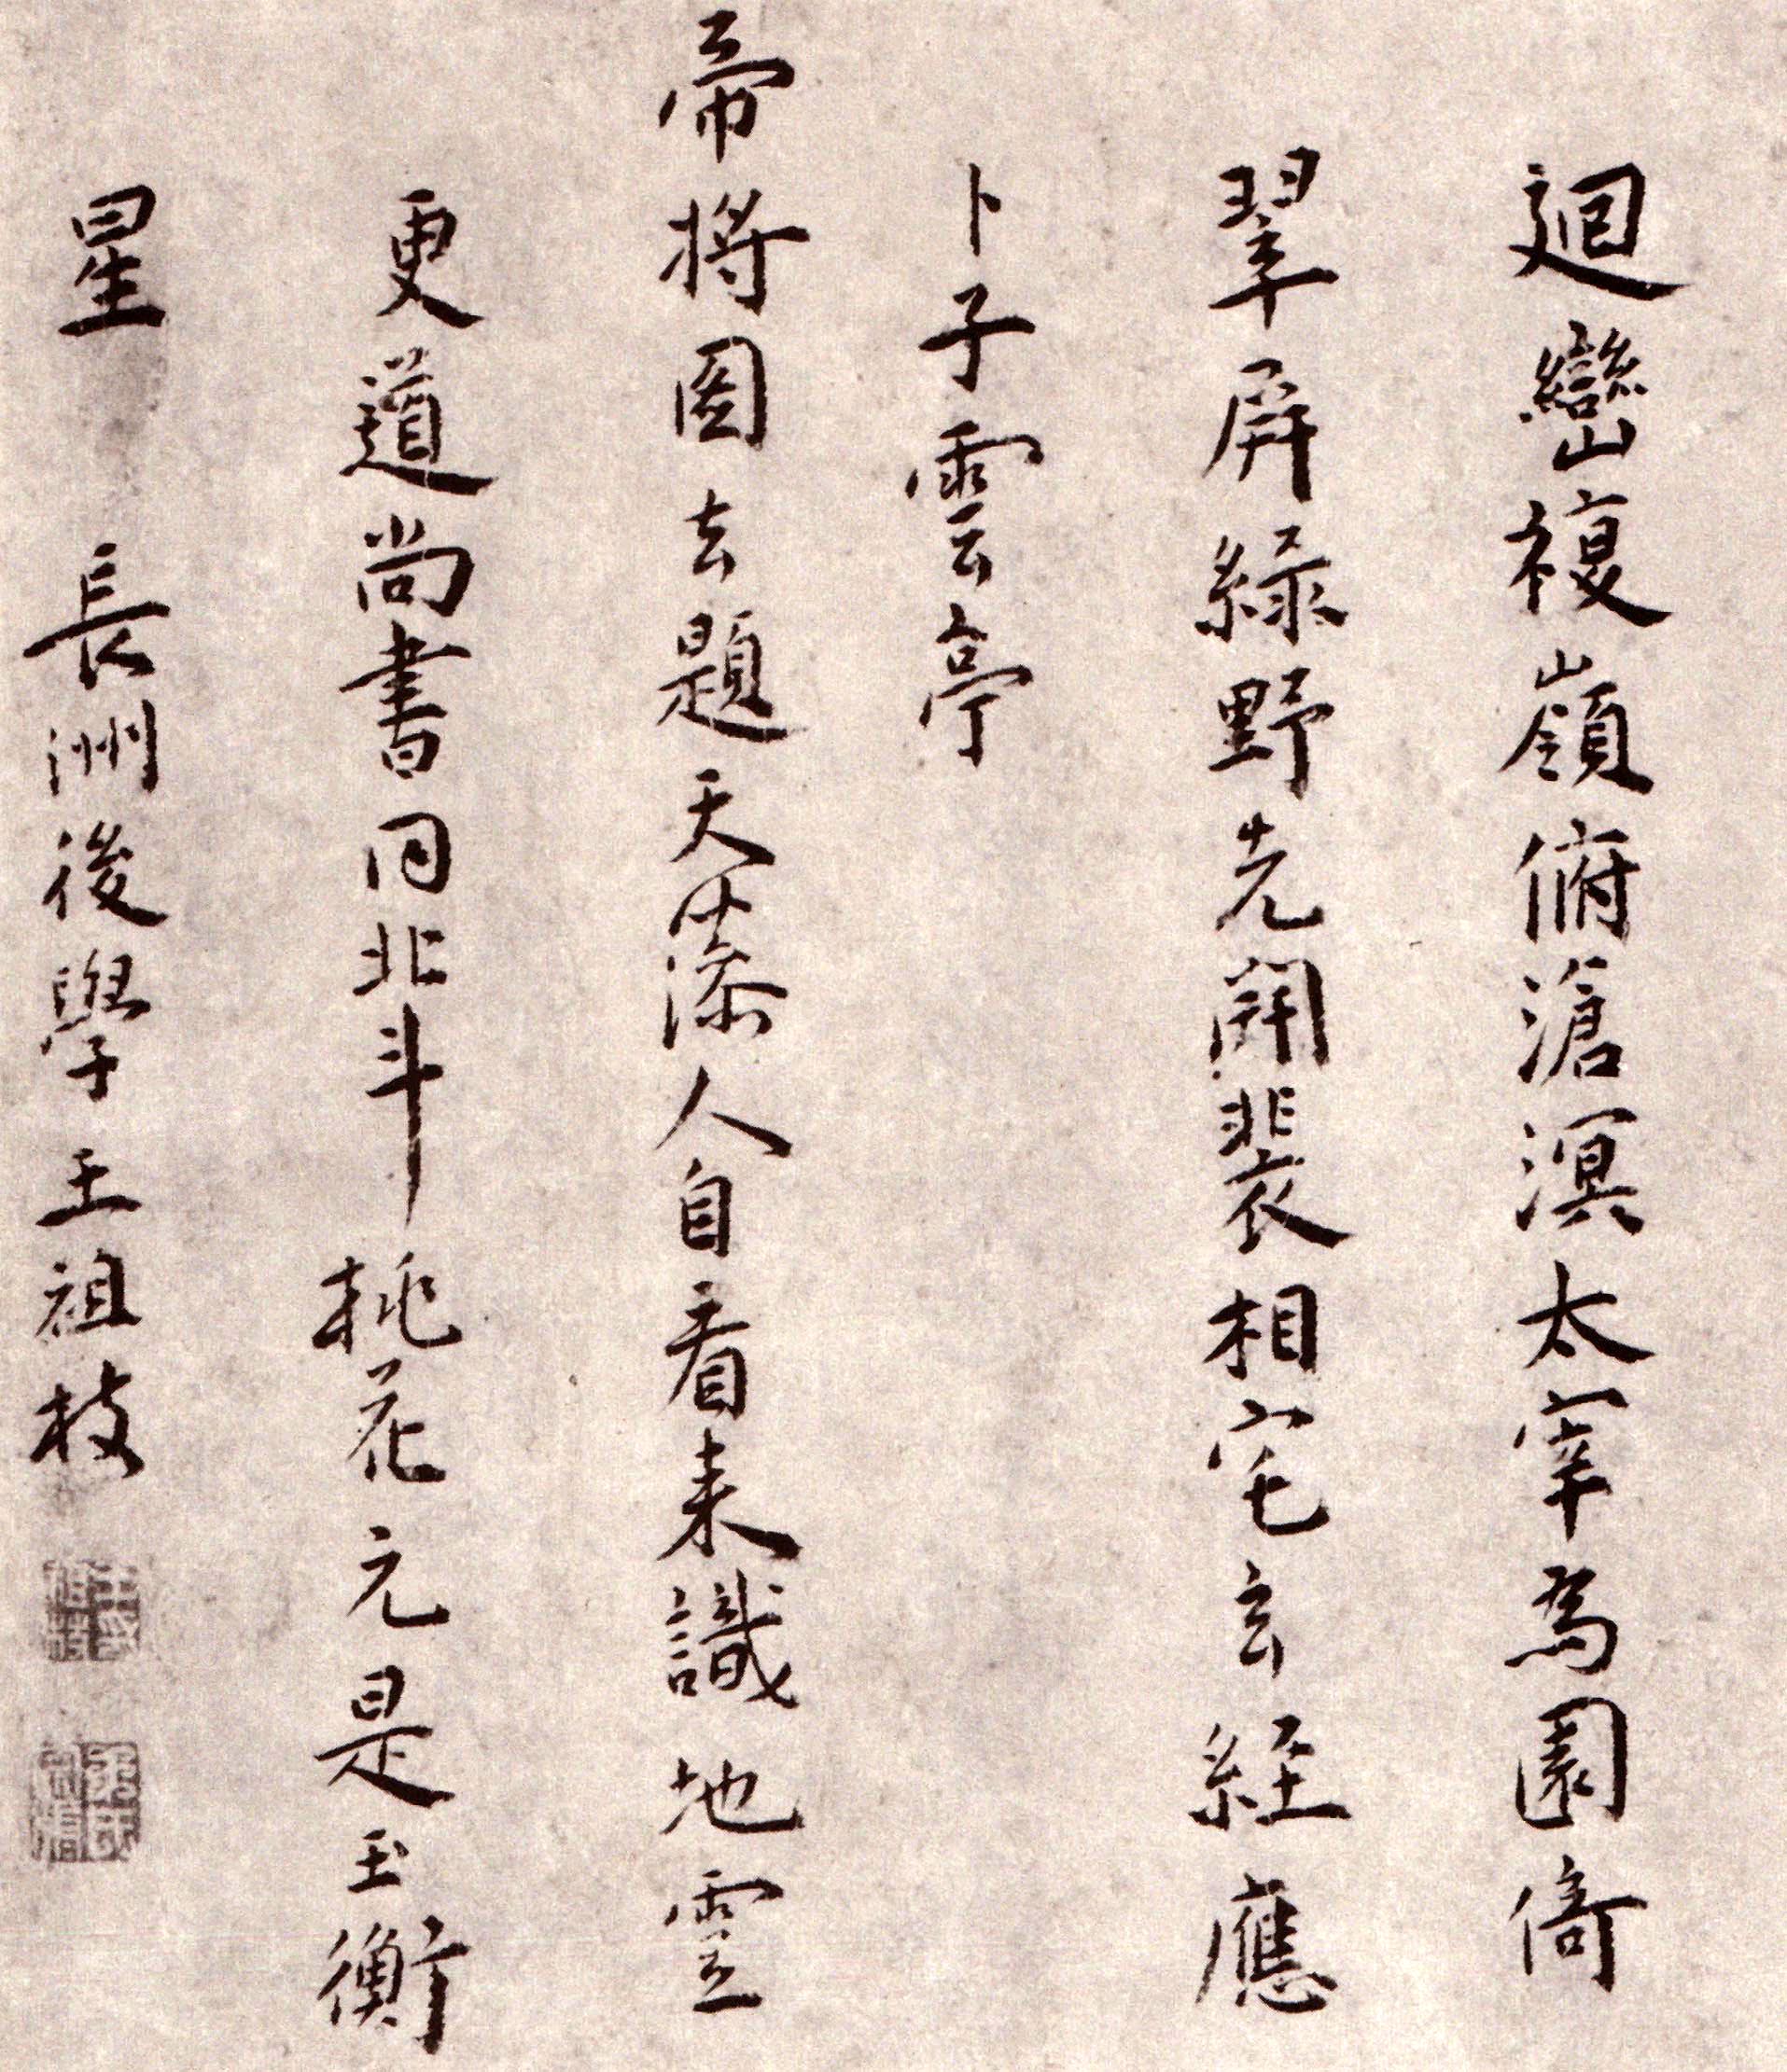 迴巒複嶺俯滄溟太宰為園倚
翠屏綠野先開裴相宅玄經應
卜子雲亭
帝將圖去題天藻人自看來識地靈
更道尚書同北斗桃花元是玉衡
星　長洲後學王祖枝